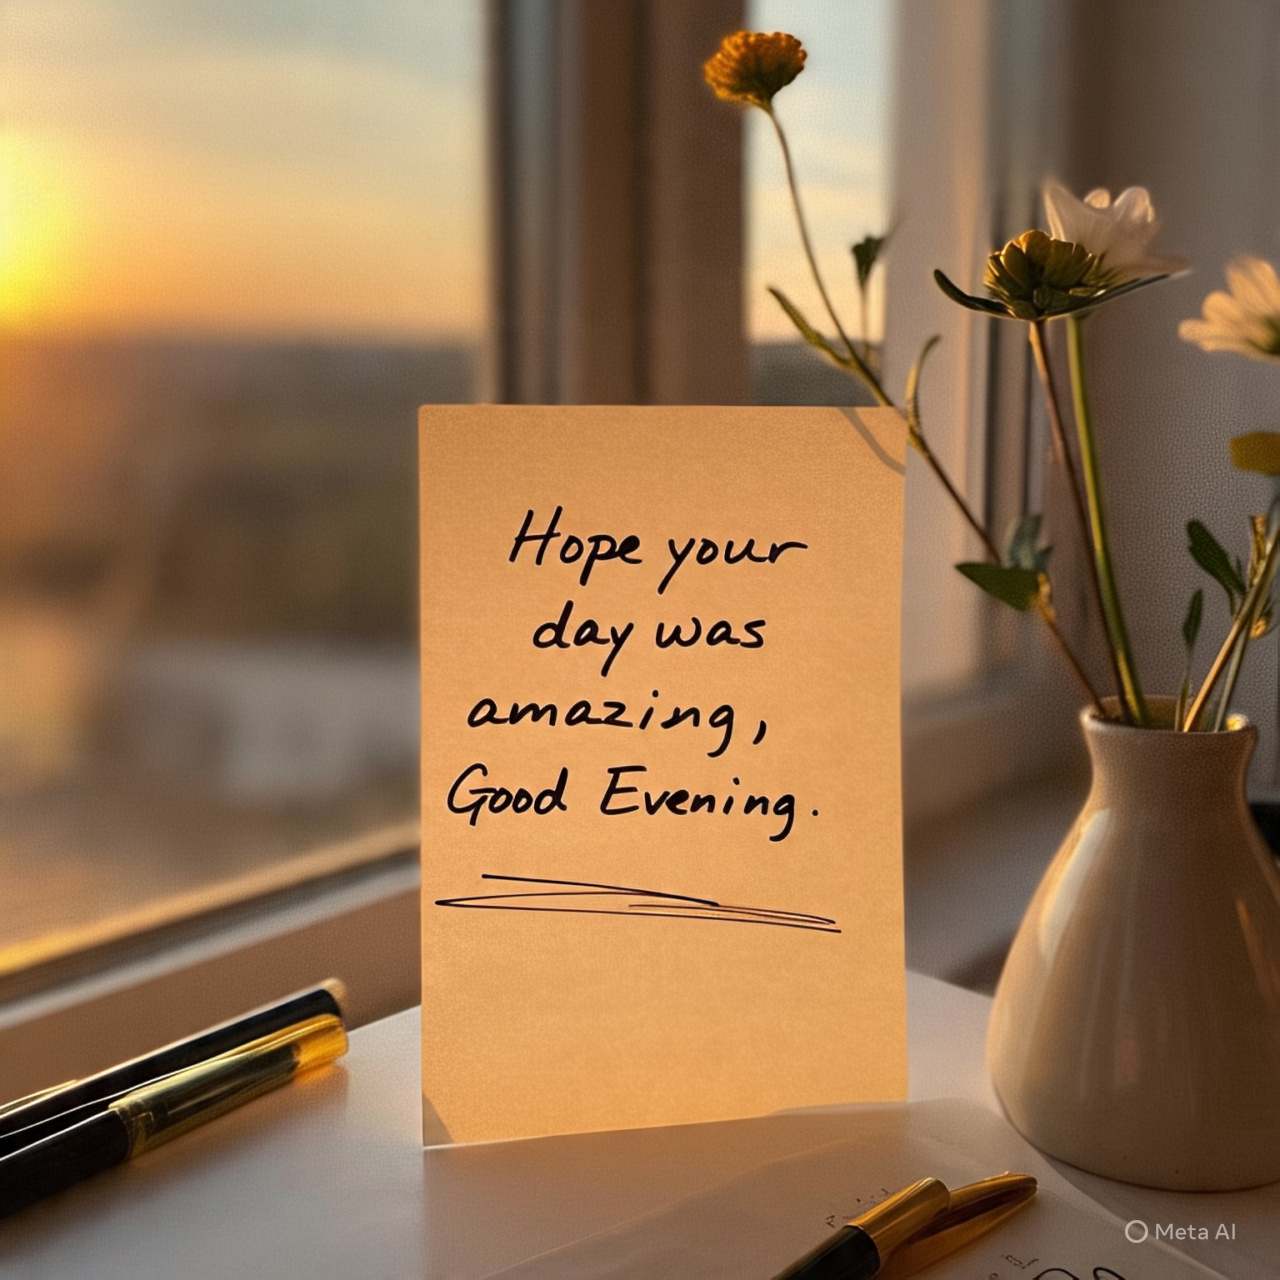 Hope your
day was
amazing,
Good Evening.
Meta AI